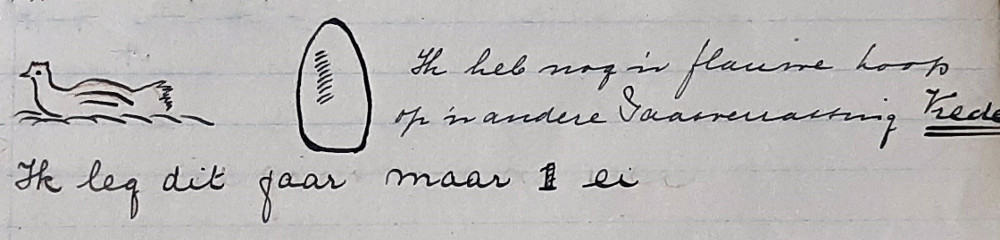 Ik heb nog 'n flauwe hoop
op 'n andere Paasverrassing Vrede
Ik leg dit jaar maar 1 ei